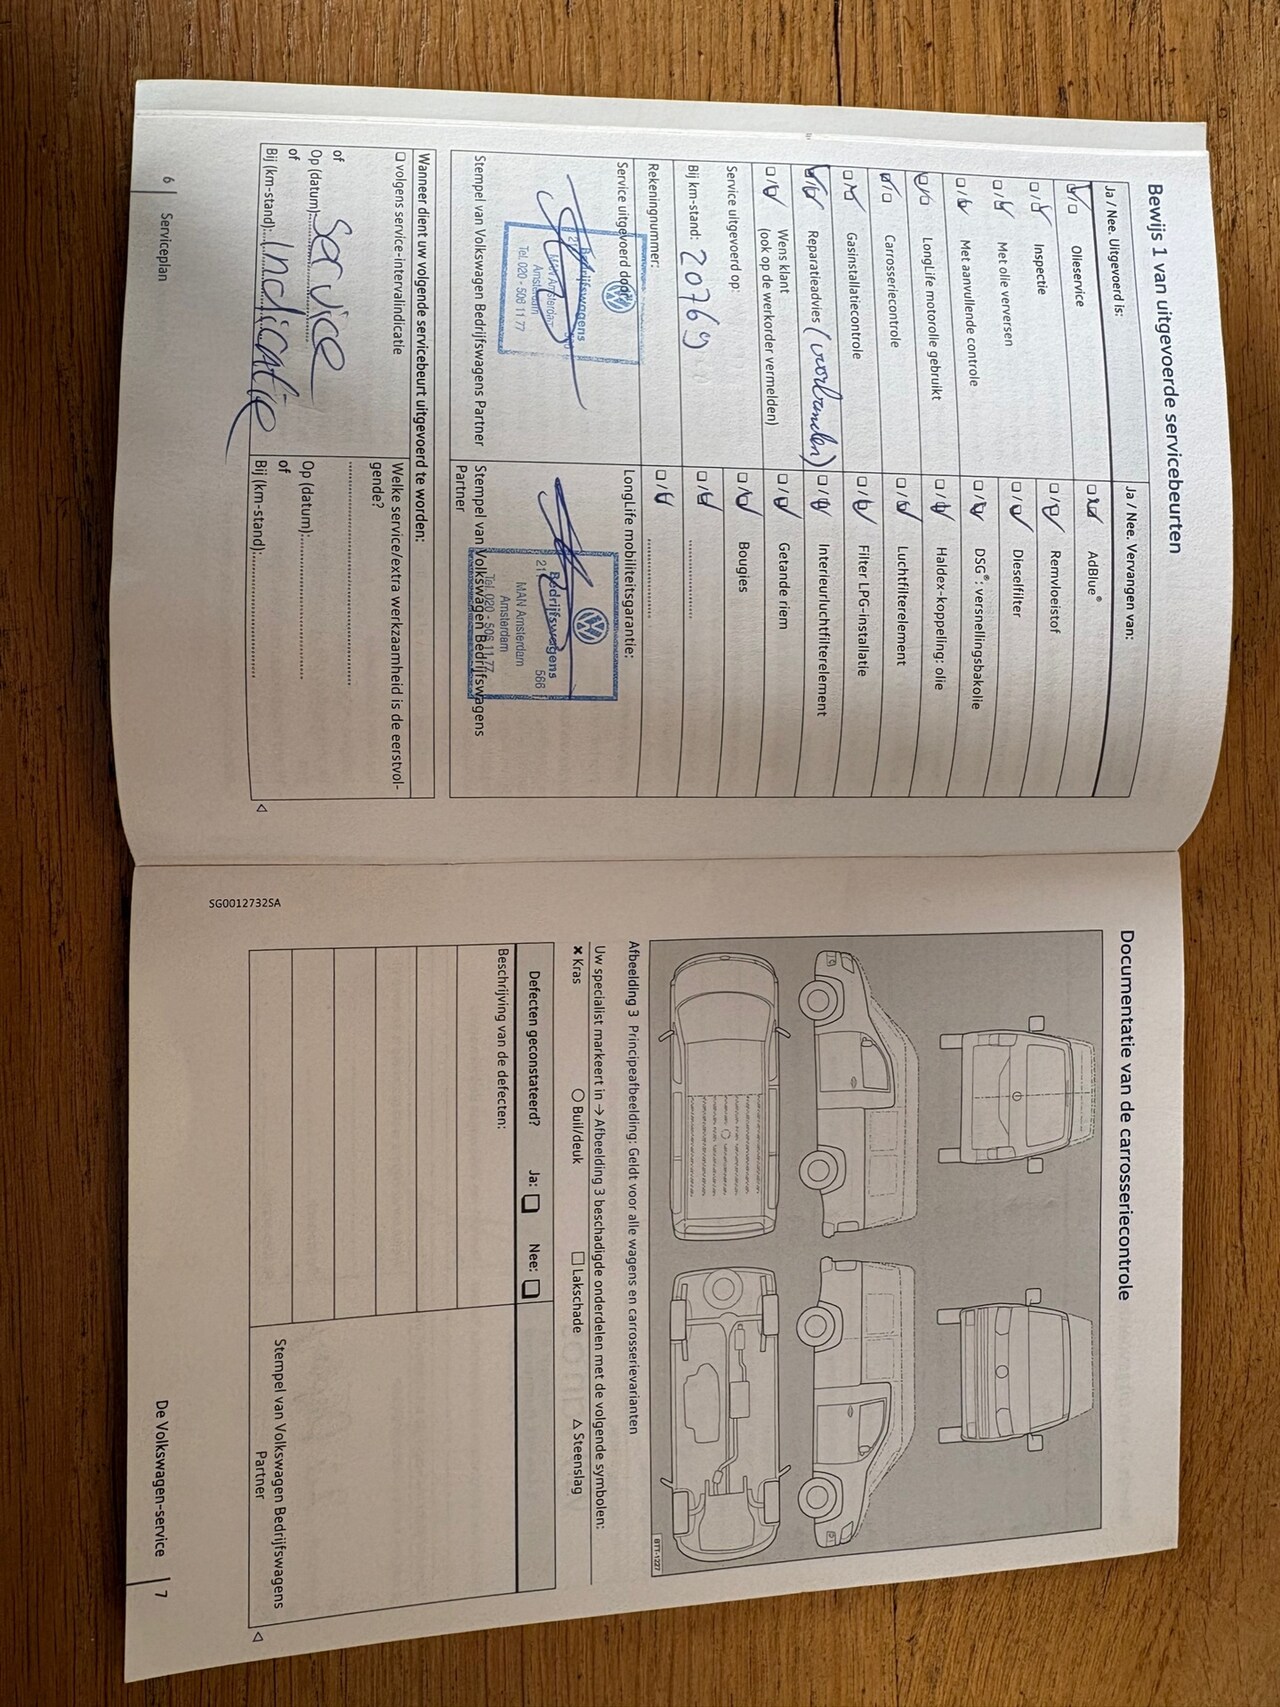 Bewijs 1 van uitgevoerde servicebeurten
Ja / Nee. Uitgevoerd is:
Olieservice
Inspectie
Met olie verversen
Met aanvullende controle
LongLife motorolie gebruikt
Carrosseriecontrole
Gasinstallatiecontrole
Reparatieadvies (voorbanden)
Wens klant
(ook op de werkorder vermelden)
Service uitgevoerd op:
Bij km-stand: 20769
Rekeningnummer:
Service uitgevoerd door:
Bedrijfswagens
MAN Amsterdam
Amsterdam
Tel. 020 - 506 11 77
Stempel van Volkswagen Bedrijfswagens Partner
Ja / Nee. Vervangen van:
AdBlue®
Remvloeistof
Dieselfilter
DSG®: versnellingsbakolie
Haldex-koppeling: olie
Luchtfilterelement
Filter LPG-installatie
Interieurluchtfilterelement
Getande riem
Bougies
LongLife mobiliteitsgarantie:
Bedrijfswagens
21 566
MAN Amsterdam
Amsterdam
Tel. 020 - 506 11 77
Stempel van Volkswagen Bedrijfswagens
Partner
Wanneer dient uw volgende servicebeurt uitgevoerd te worden:
volgens service-intervalindicatie
of
Op (datum): Service
of
Bij (km-stand): Indicatie
Welke service/extra werkzaamheid is de eerstvol-
gende?
Op (datum):
of
Bij (km-stand):
6 Serviceplan
Documentatie van de carrosseriecontrole
BTT-1227
Afbeelding 3 Principeafbeelding: Geldt voor alle wagens en carrosserievarianten
Uw specialist markeert in → Afbeelding 3 beschadigde onderdelen met de volgende symbolen:
× Kras ○ Buil/deuk □ Lakschade △ Steenslag
Defecten geconstateerd? Ja: Nee:
Beschrijving van de defecten:
Stempel van Volkswagen Bedrijfswagens
Partner
SG0012732SA
De Volkswagen-service 7